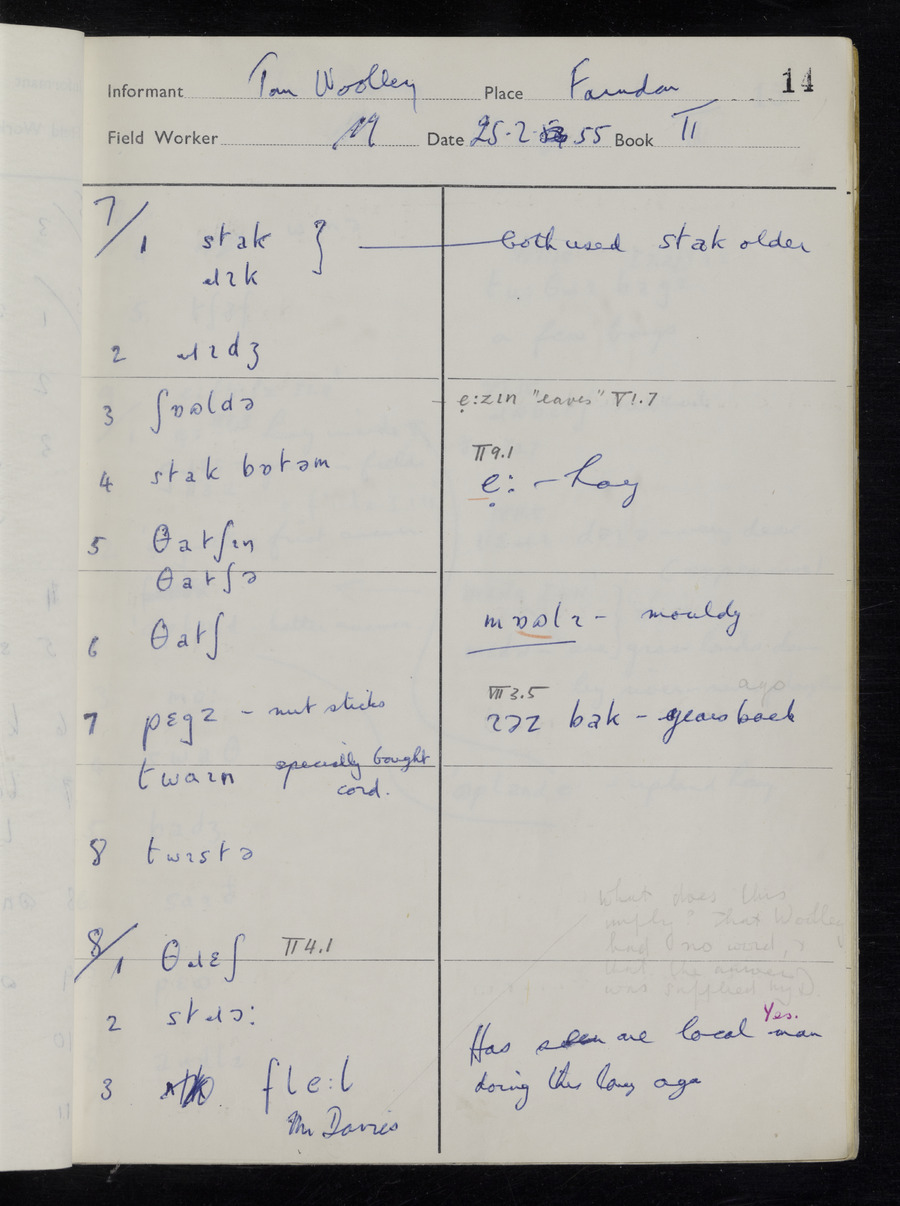 Informant Tom Woolley Place Farndon 14
Field Worker Date 25-2-55 Book II
7/1 stak } both used stak older
ɹɪk
2 ɹɪdʒ
3 ʃɒəldə ẹ:zɪn "eaves" VI.7
4 stak bɒtəm II 9.1
ẹ: - hay
5 θatʃɪn
θatʃə
6 θatʃ mɒəlɪ - mouldy
7 pɛgz - nut sticks VII 3.5 ago
ɪəz bak - years back
twaɪn specially bought
cord.
8 twɪstə
what does this
imply? That Woolley
had no word, &
that the answer
was supplied by D.
8/1 θɹɛʃ II 4.1
2 stɹɔ: Yes.
Has seen one local man
3 fle:l doing this long ago
Mr Davies